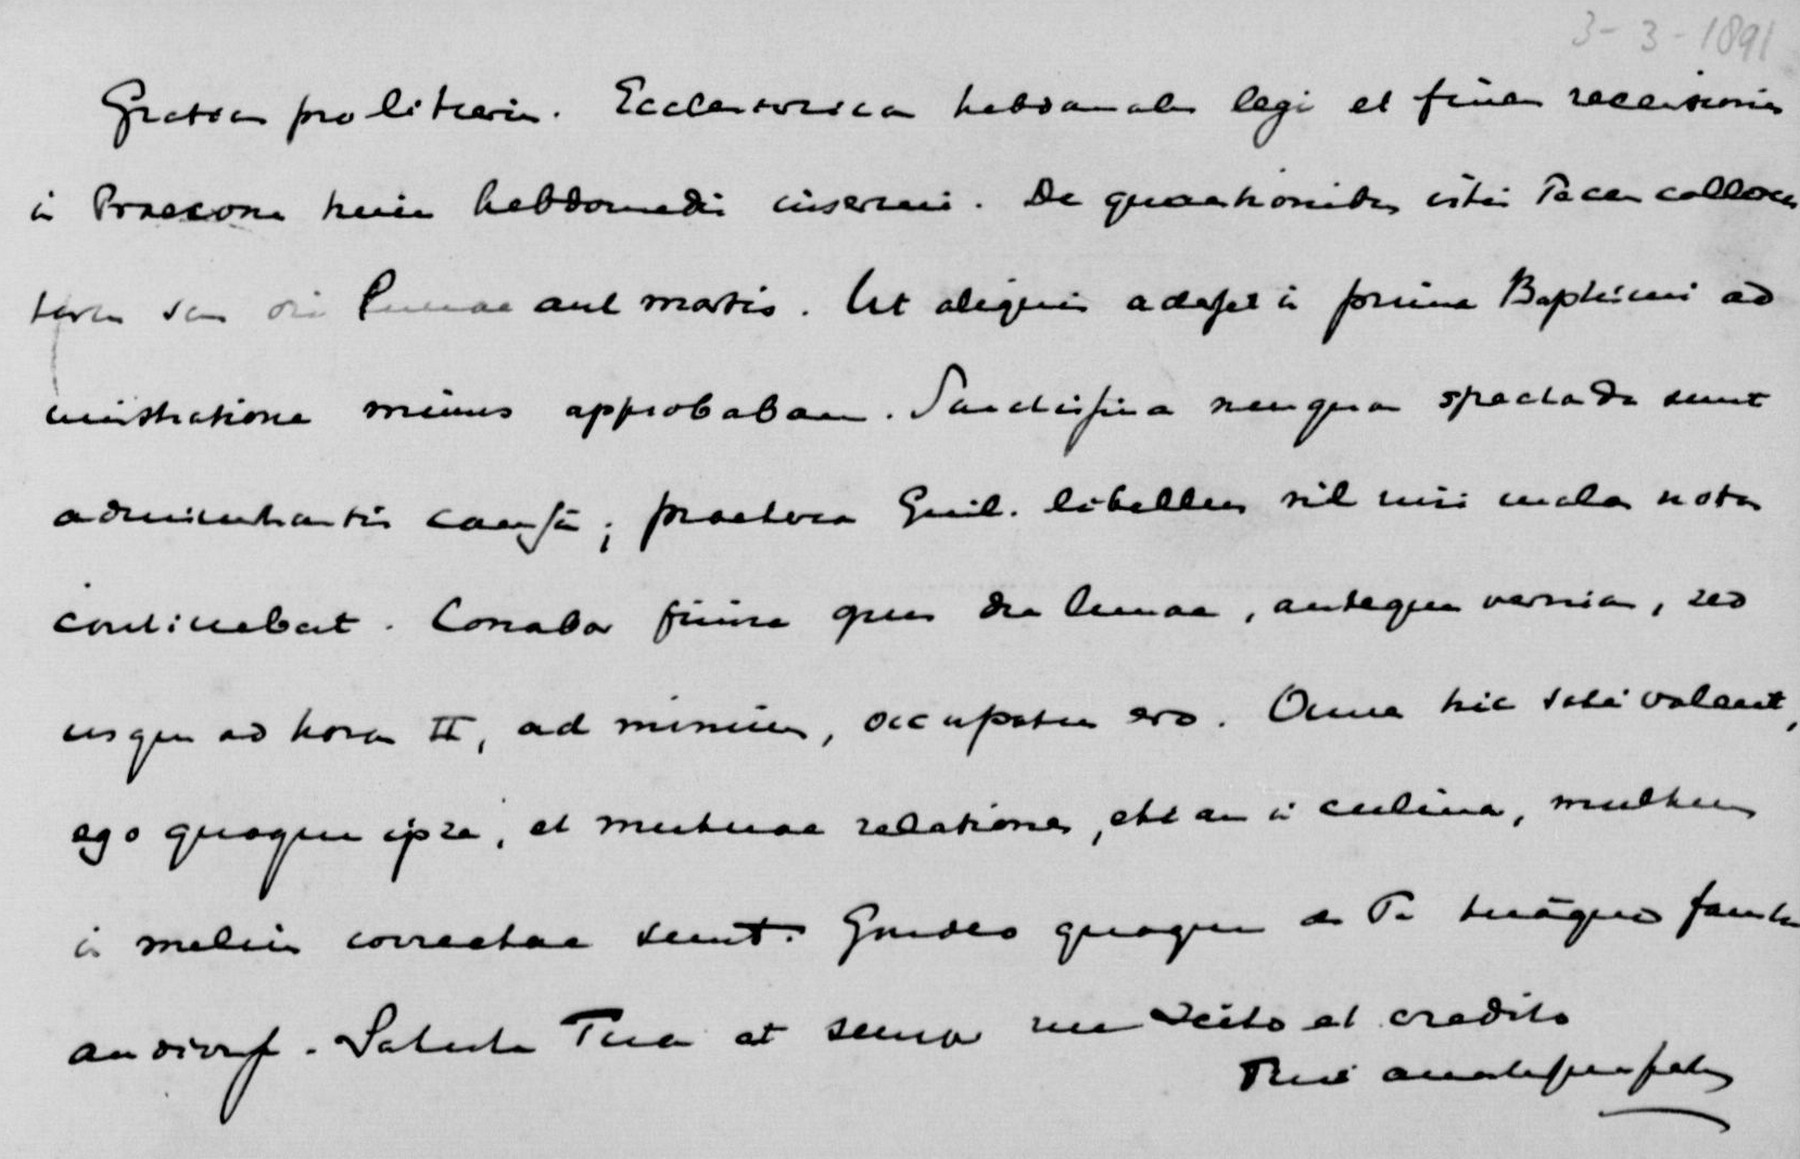 3-3-1891
Gratias pro litteris. Ecclesiastica hebdomadis legi et finem recensionis
in Praecone huius hebdomadis inserui. De quaestionibus istis Tecum colloca
die Lunae aut Martis. Ut aliquis adesset in prima Baptismi ad
ministratione minus approbabam. Sanctissima nunquam spectanda sunt
administrantis causâ; praeterea Guil. libellus nil nisi malas notas
continebat. Conabor finire quum die Lunae, antequam venias, sed
usque ad horam II, ad minimum, occupatus ero. Omnes hic satis valent,
ego quoque ipse, et mutuae relationes, etiam in culina, multum
in melius correctae sunt. Gaudeo quoque de Te tuâque familia
audivisse. Saluta Tuam et semper me scito et credito
Tui amantissimum patrem